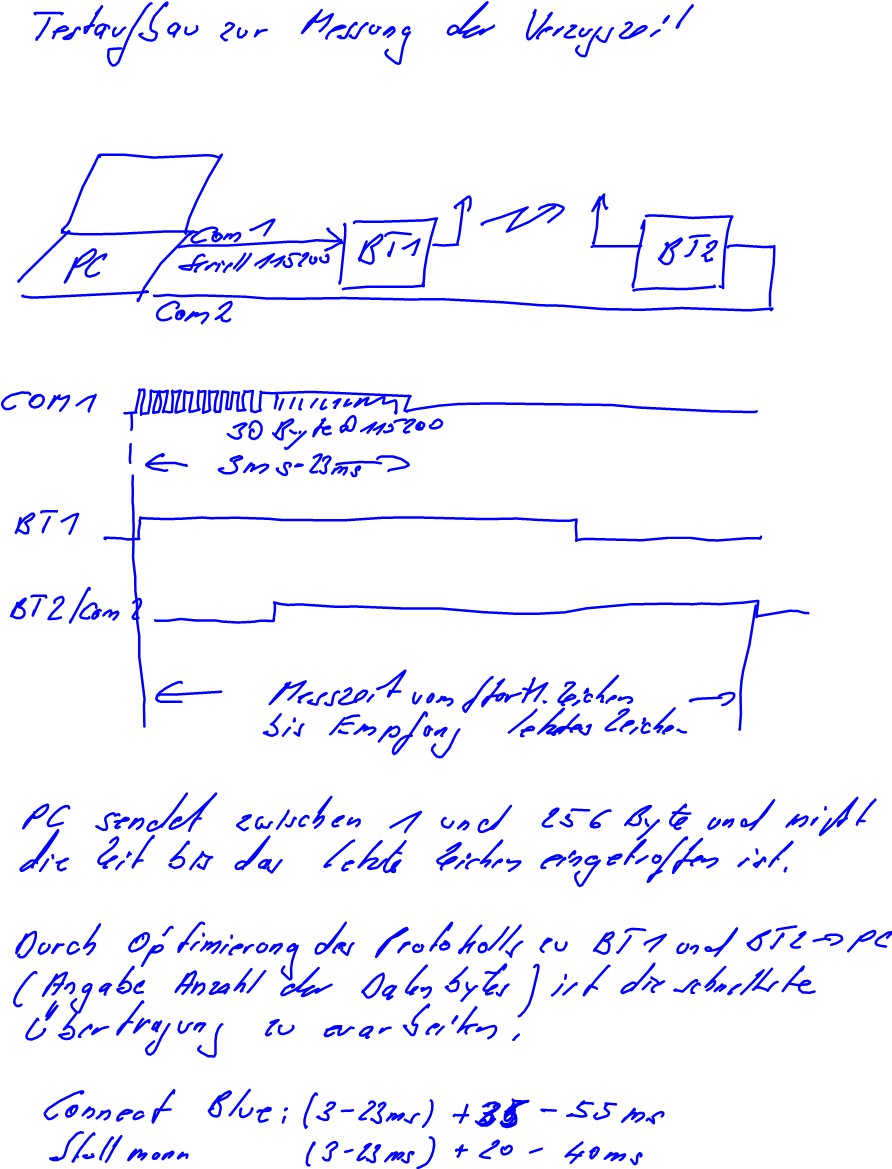 Testaufbau zur Messung der Verzugszeit
Com1
Seriell 115200
PC
BT1
BT2
Com2
COM1
30 Byte @ 115200
3ms-23ms
BT1
BT2/Com2
Messzeit vom Start 1. Zeichen
bis Empfang letztes Zeichen
PC sendet zwischen 1 und 256 Byte und mißt
die Zeit bis das letzte Zeichen eingetroffen ist.
Durch Optimierung des Protokolls zu BT1 und BT2→PC
(Angabe Anzahl der Datenbytes) ist die schnellste
Übertragung zu erarbeiten.
Connect Blue: (3-23ms) + 35 - 55ms
Stollmann (3-23ms) + 20 - 40ms